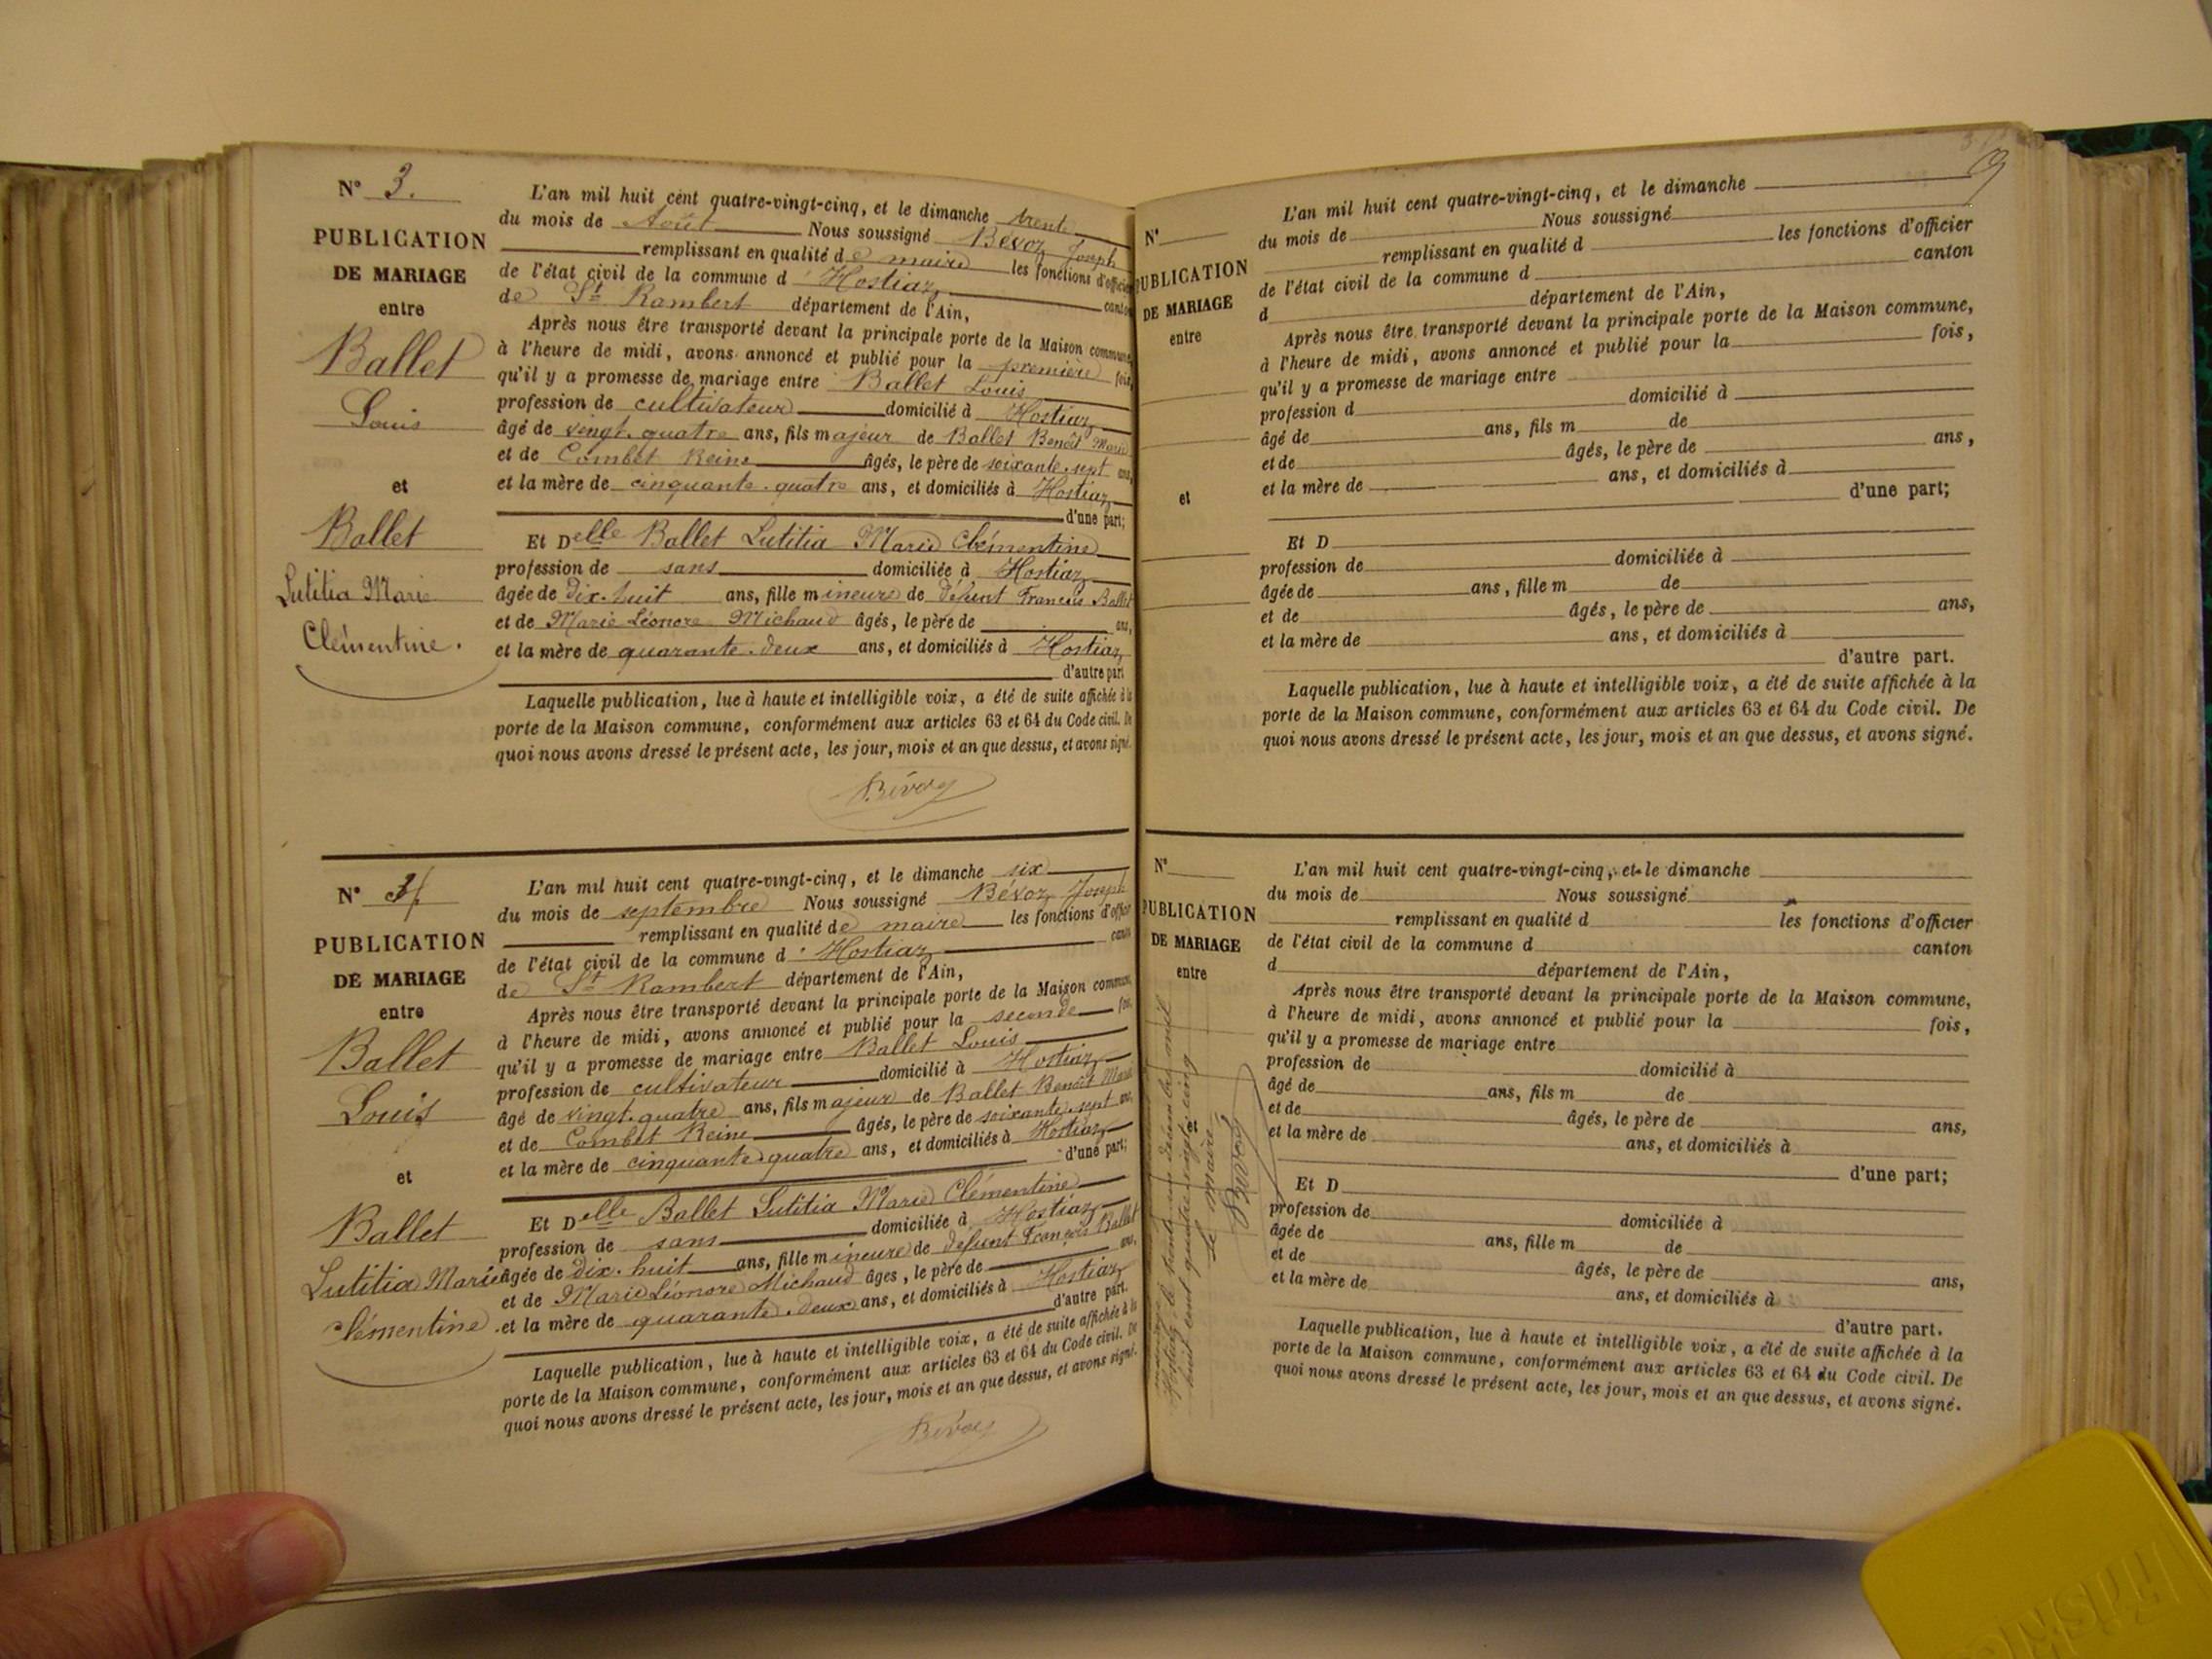 N° 3.
PUBLICATION
DE MARIAGE
entre
Ballet
Louis
et
Ballet
Lutitia Marie
Clémentine.
L'an mil huit cent quatre-vingt-cinq, et le dimanche trente
du mois de Août Nous soussigné Bévoz Joseph
remplissant en qualité de maire les fonctions d'officier
de l'état civil de la commune d'Hostiaz canton
de St Rambert département de l'Ain,
Après nous être transporté devant la principale porte de la Maison commune,
à l'heure de midi, avons annoncé et publié pour la première fois,
qu'il y a promesse de mariage entre Ballet Louis
profession de cultivateur domicilié à Hostiaz
âgé de vingt-quatre ans, fils majeur de Ballet Benoît Marie
et de Combet Reine âgés, le père de soixante-sept ans,
et la mère de cinquante-quatre ans, et domiciliés à Hostiaz
d'une part;
Et Delle Ballet Lutitia Marie Clémentine
profession de sans domiciliée à Hostiaz
âgée de dix-huit ans, fille mineure de défunt François Ballet
et de Marie Léonore Michaud âgés, le père de ans,
et la mère de quarante-deux ans, et domiciliés à Hostiaz
d'autre part
Laquelle publication, lue à haute et intelligible voix, a été de suite affichée à la
porte de la Maison commune, conformément aux articles 63 et 64 du Code civil. De
quoi nous avons dressé le présent acte, les jour, mois et an que dessus, et avons signé.
Bévoz
N° 4
PUBLICATION
DE MARIAGE
entre
Ballet
Louis
et
Ballet
Lutitia Marie
Clémentine.
L'an mil huit cent quatre-vingt-cinq, et le dimanche six
du mois de septembre Nous soussigné Bévoz Joseph
remplissant en qualité de maire les fonctions d'officier
de l'état civil de la commune d'Hostiaz canton
de St Rambert département de l'Ain,
Après nous être transporté devant la principale porte de la Maison commune,
à l'heure de midi, avons annoncé et publié pour la seconde fois,
qu'il y a promesse de mariage entre Ballet Louis
profession de cultivateur domicilié à Hostiaz
âgé de vingt-quatre ans, fils majeur de Ballet Benoît Marie
et de Combet Reine âgés, le père de soixante-sept ans,
et la mère de cinquante-quatre ans, et domiciliés à Hostiaz
d'une part;
Et Delle Ballet Lutitia Marie Clémentine
profession de sans domiciliée à Hostiaz
âgée de dix-huit ans, fille mineure de défunt François Ballet
et de Marie Léonore Michaud âgés, le père de ans,
et la mère de quarante-deux ans, et domiciliés à Hostiaz
d'autre part.
Laquelle publication, lue à haute et intelligible voix, a été de suite affichée à la
porte de la Maison commune, conformément aux articles 63 et 64 du Code civil. De
quoi nous avons dressé le présent acte, les jour, mois et an que dessus, et avons signé.
Bévoz
9
N°
PUBLICATION
DE MARIAGE
entre
et
L'an mil huit cent quatre-vingt-cinq, et le dimanche
du mois de Nous soussigné
remplissant en qualité d les fonctions d'officier
de l'état civil de la commune d canton
d département de l'Ain,
Après nous être transporté devant la principale porte de la Maison commune,
à l'heure de midi, avons annoncé et publié pour la fois,
qu'il y a promesse de mariage entre
profession d domicilié à
âgé de ans, fils m de
et de âgés, le père de ans,
et la mère de ans, et domiciliés à
d'une part;
Et D
profession de domiciliée à
âgée de ans, fille m de
et de âgés, le père de ans,
et la mère de ans, et domiciliés à
d'autre part.
Laquelle publication, lue à haute et intelligible voix, a été de suite affichée à la
porte de la Maison commune, conformément aux articles 63 et 64 du Code civil. De
quoi nous avons dressé le présent acte, les jour, mois et an que dessus, et avons signé.
N°
PUBLICATION
DE MARIAGE
entre
Hostiaz le trente un décembre mil
huit cent quatre-vingt-cinq
le maire
Bévoz
L'an mil huit cent quatre-vingt-cinq, et le dimanche
du mois de Nous soussigné
remplissant en qualité d les fonctions d'officier
de l'état civil de la commune d canton
d département de l'Ain,
Après nous être transporté devant la principale porte de la Maison commune,
à l'heure de midi, avons annoncé et publié pour la fois,
qu'il y a promesse de mariage entre
profession de domicilié à
âgé de ans, fils m de
et de âgés, le père de ans,
et la mère de ans, et domiciliés à
d'une part;
Et D
profession de domiciliée à
âgée de ans, fille m de
et de âgés, le père de ans,
et la mère de ans, et domiciliés à
d'autre part.
Laquelle publication, lue à haute et intelligible voix, a été de suite affichée à la
porte de la Maison commune, conformément aux articles 63 et 64 du Code civil. De
quoi nous avons dressé le présent acte, les jour, mois et an que dessus, et avons signé.